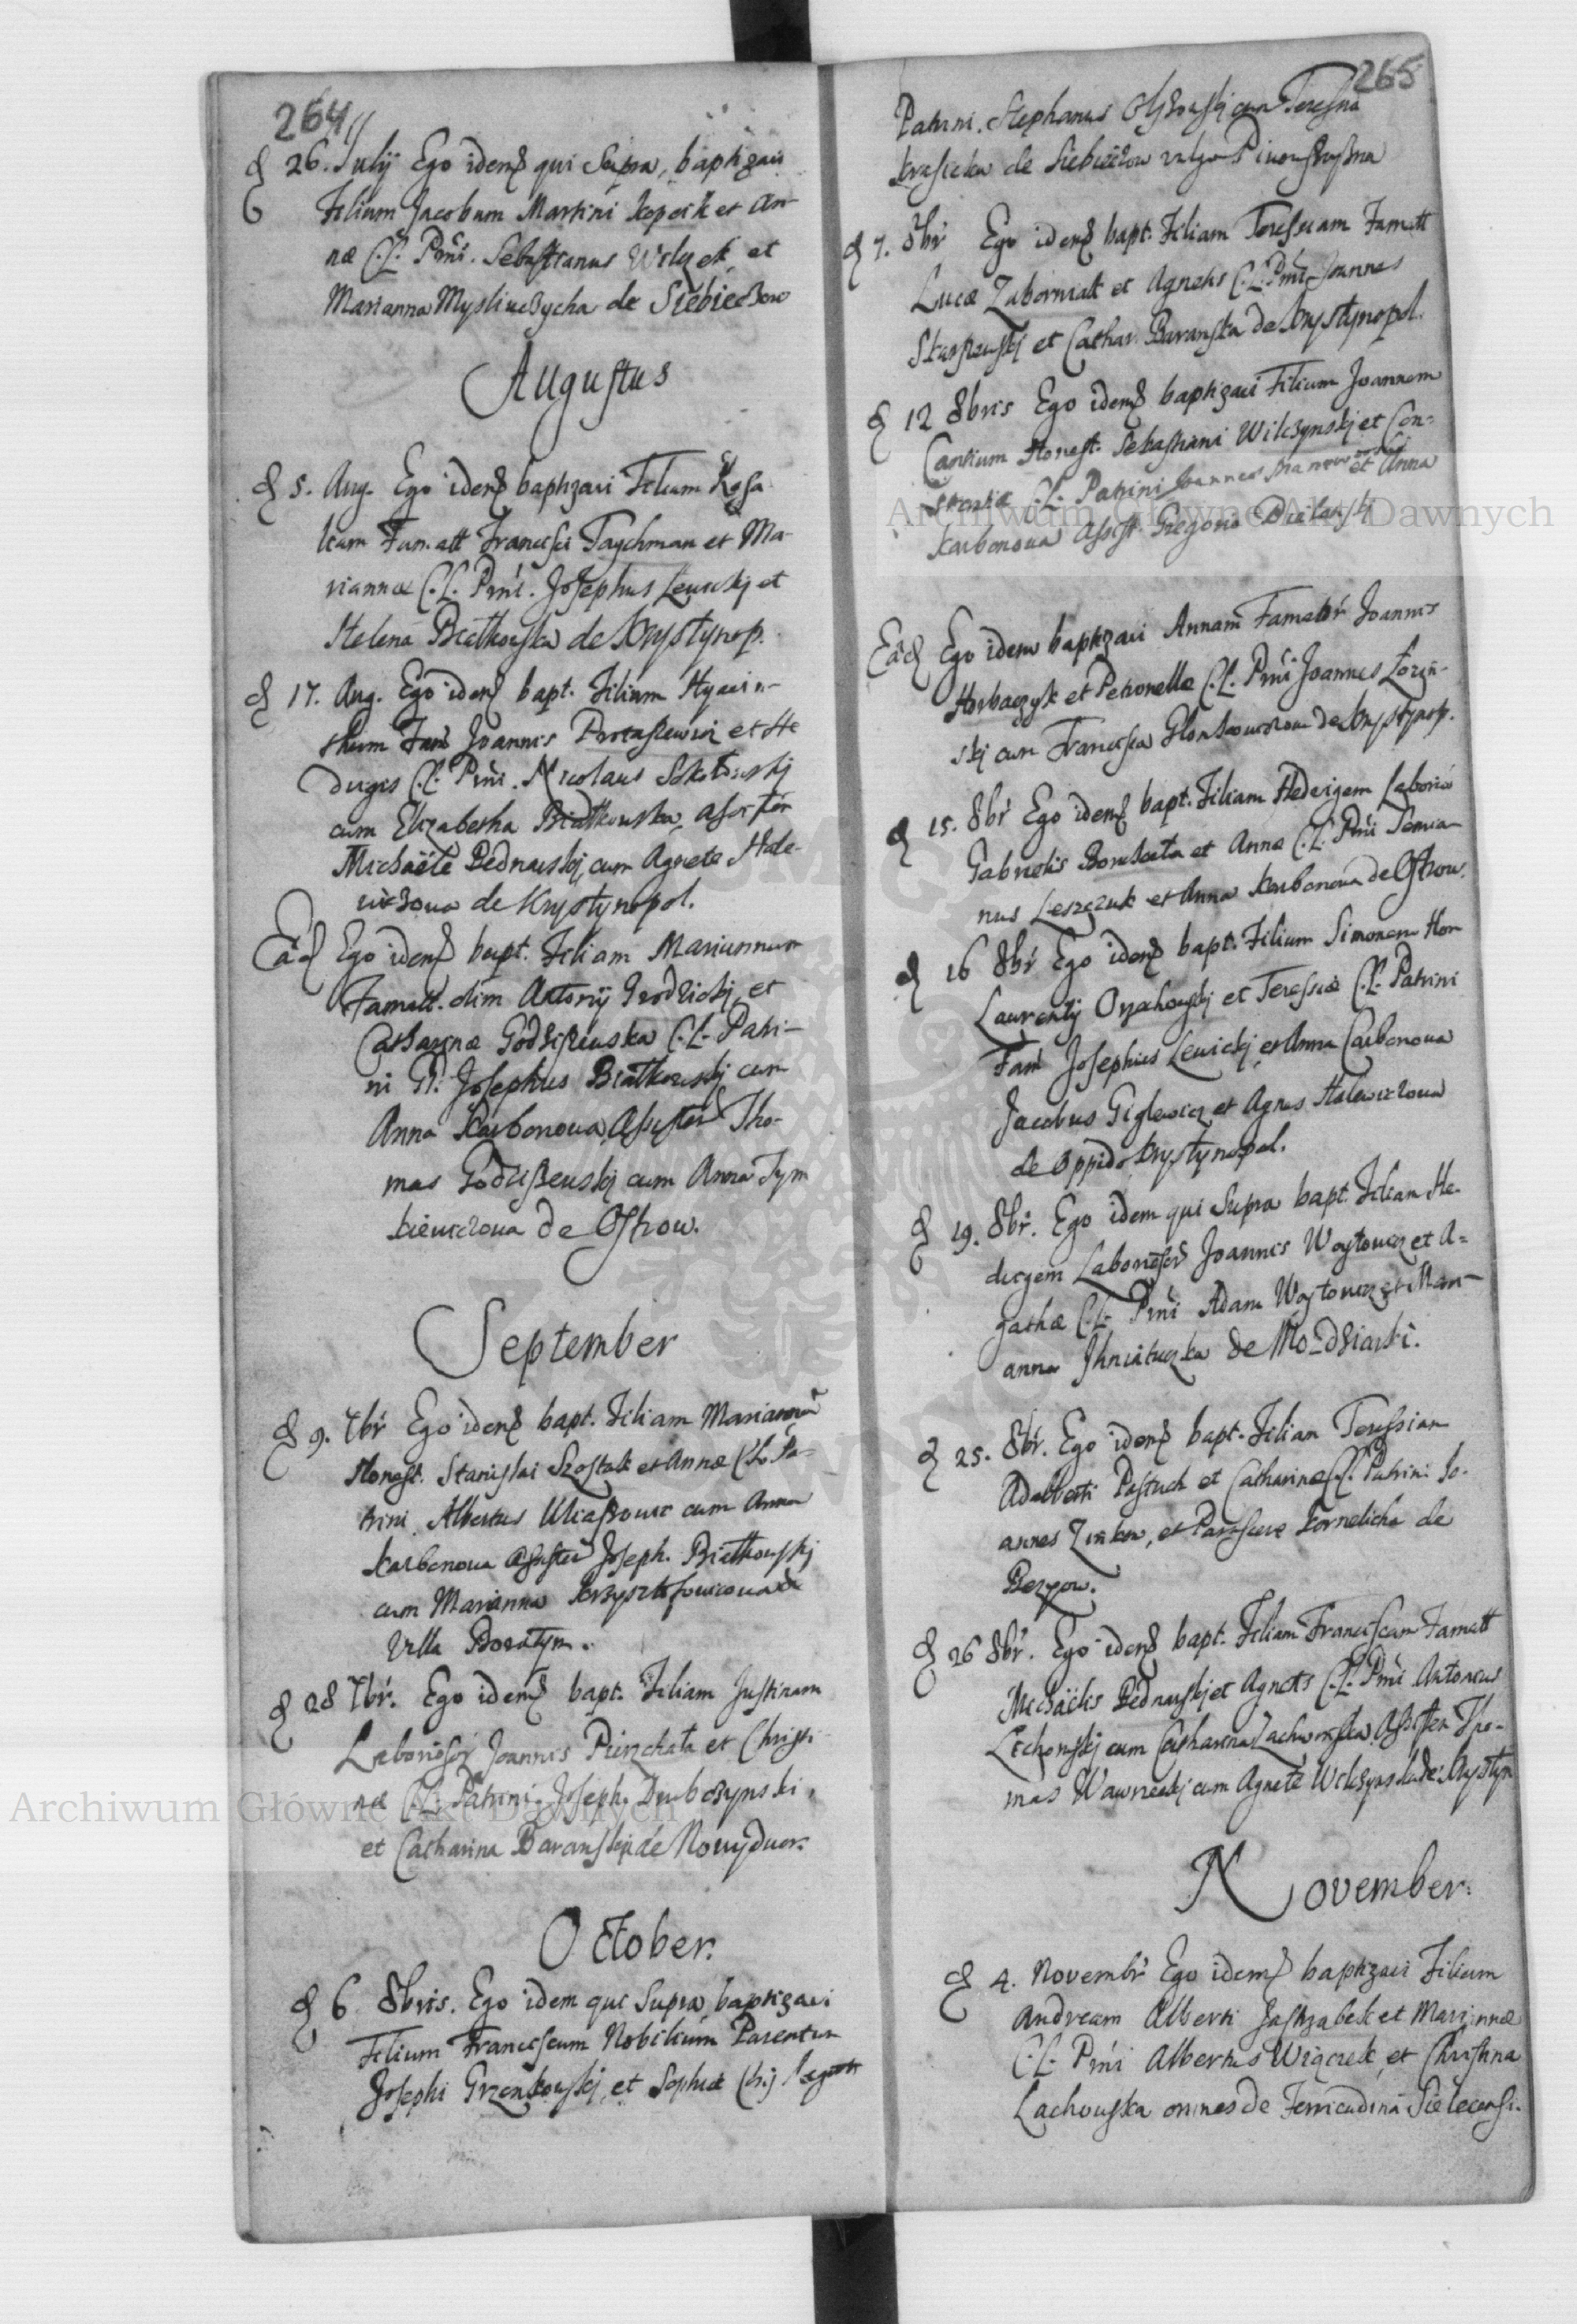 264
26. Julÿ Ego idem qui Supra, baptizavi
Filium Jacobum Martini Kopcik et An-
næ C.L. Prni. Sebastianus Wilczek et
Marianna Mysliwczycha de Siebieczow
Augustus
5. Aug. Ego idem baptizavi Filiam Rosa
liam Famatt Francisci Taychman et Ma-
riannæ C.L. Prni. Josephus Lewickj et
Helena Białkowska de Krystynop.
17. Aug. Ego idem bapt. Filium Hyacin-
thum Fam Joannis Protasiewicz et He
dvigis C.L. Prni. Nicolaus Sokołowskj
cum Elizabetha Białkowska, assisten
Michaële Bednarskj, cum Agnete Hale-
wiczowa de Krystynopol.
Ead Ego idem bapt. Filiam Mariannam
Famatt. olim Antonij Grodzickj, et
Catharinæ Godziszewska C.L. Patri-
ni G. Josephus Białkowskj cum
Anna Karbonowa Assisten Tho-
mas Godziszewskj cum Anna Tym
kiewiczowa de Ostrow.
September
9. 7br Ego idem bapt. Filiam Mariannã
Honest. Stanislai Szostak et Annæ C.L. Pa-
trini Albertus Uliaszowic cum Anna
Karbonowa assisten Joseph. Białkowskj
cum Marianna Krzysztofowiczowa de
Villa Boratyn.
28 7br. Ego idem bapt. Filiam Justinam
Laborioser Joannis Pierzchała et Christi-
næ C.L. Patrini Joseph. Dembczynski,
et Catharina Baranskj de Nowydwor.
October.
6 8bris. Ego idem qui Supra baptizavi
Filium Franciscum Nobilium Parentum
Josephi Grzenkowskj et Sophiæ
265
Patrini. Stephanus Olszowskj cum Teresina
Krasicka de Siebieczow vulgo
7. 8br Ego idem bapt. Filiam Teressiam Famatt
Lucæ Zaborniak et Agnetis C.L. Prni Joannes
Skarszewskj et Cathar. Baranska de Krystynopol.
12 8bris Ego idem baptizavi Filium Joannem
Cantium Honest. Sebastiani Wilczynskj et Con-
stantiæ C.L. Patrini Joannes et Anna
Karbonowa Assist. Gregorio Bielanskj
Ead Ego idem baptizavi Annam Famator Joannis
Horbaczyk et Petronellæ C.L. Prni Joannes Łozin-
skj cum Francisca de Krystynop.
15. 8br Ego idem bapt. Filiam Hedvigem Laborio
Gabrielis et Annæ C.L. Prni Semia-
nus Leszczuk et Anna Karbonowa de Ostrow.
16 8br Ego idem bapt. Filium Simonem Hon
Laurentij Orzechowskj et Teressiæ C.L. Patrini
Fam Josephus Lewickj et Anna Carbonowa
Jacobus Giglewicz et Agnes Halewiczowa
de Oppido Krystynopol.
19. 8br. Ego idem qui Supra bapt. Filiam He-
dvigem Laborioser Joannis Woytowicz et A-
gathæ C.L. Prni Adam Woytowicz et Mari-
anna Ihniatuczka de Mozdziarki.
25. 8br. Ego idem bapt. Filiam Teressiam
Adalberti Pastuch et Catharinæ C.L. Patrini Jo-
annes Zinkow, et Parascevæ Kornelicha de
Bezyow.
26 8br. Ego idem bapt. Filiam Franciscam Famatt
Michaëlis Bednarskj et Agnetis C.L. Prni Antonius
Lechowskj cum Catharina Lachowska Assisten Tho-
mas Wawrzeckj cum Agnete Wilczynska de Krystyn
November.
4. Novembr Ego idem baptizavi Filium
Andream Alberti Jastrzabek et Mariannæ
C.L. Prni Albertus Wiączek et Christina
Lachowska omnes de Ferricudina Sielecensi.
Archiwum Główne Akt Dawnych
Archiwum Główne Akt Dawnych